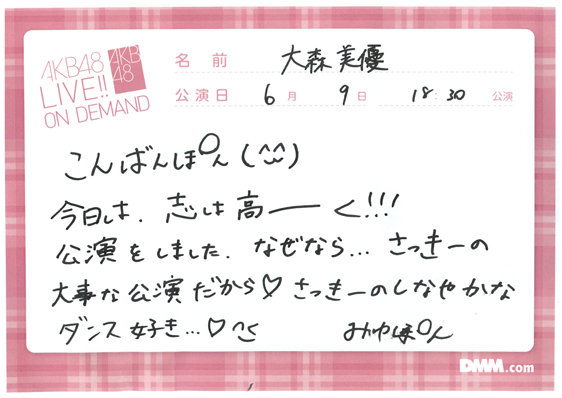 AKB48
LIVE!!
ON DEMAND
AKB
48
名前 大森美優
公演日 6月 9日 18:30 公演
こんばんぽん (^^)
今日は、志は高ーく!!!
公演をしました。なぜなら... さっきーの
大事な公演だから♡さっきーのしなやかな
ダンス好き...♡
みゆぽん
DMM.com